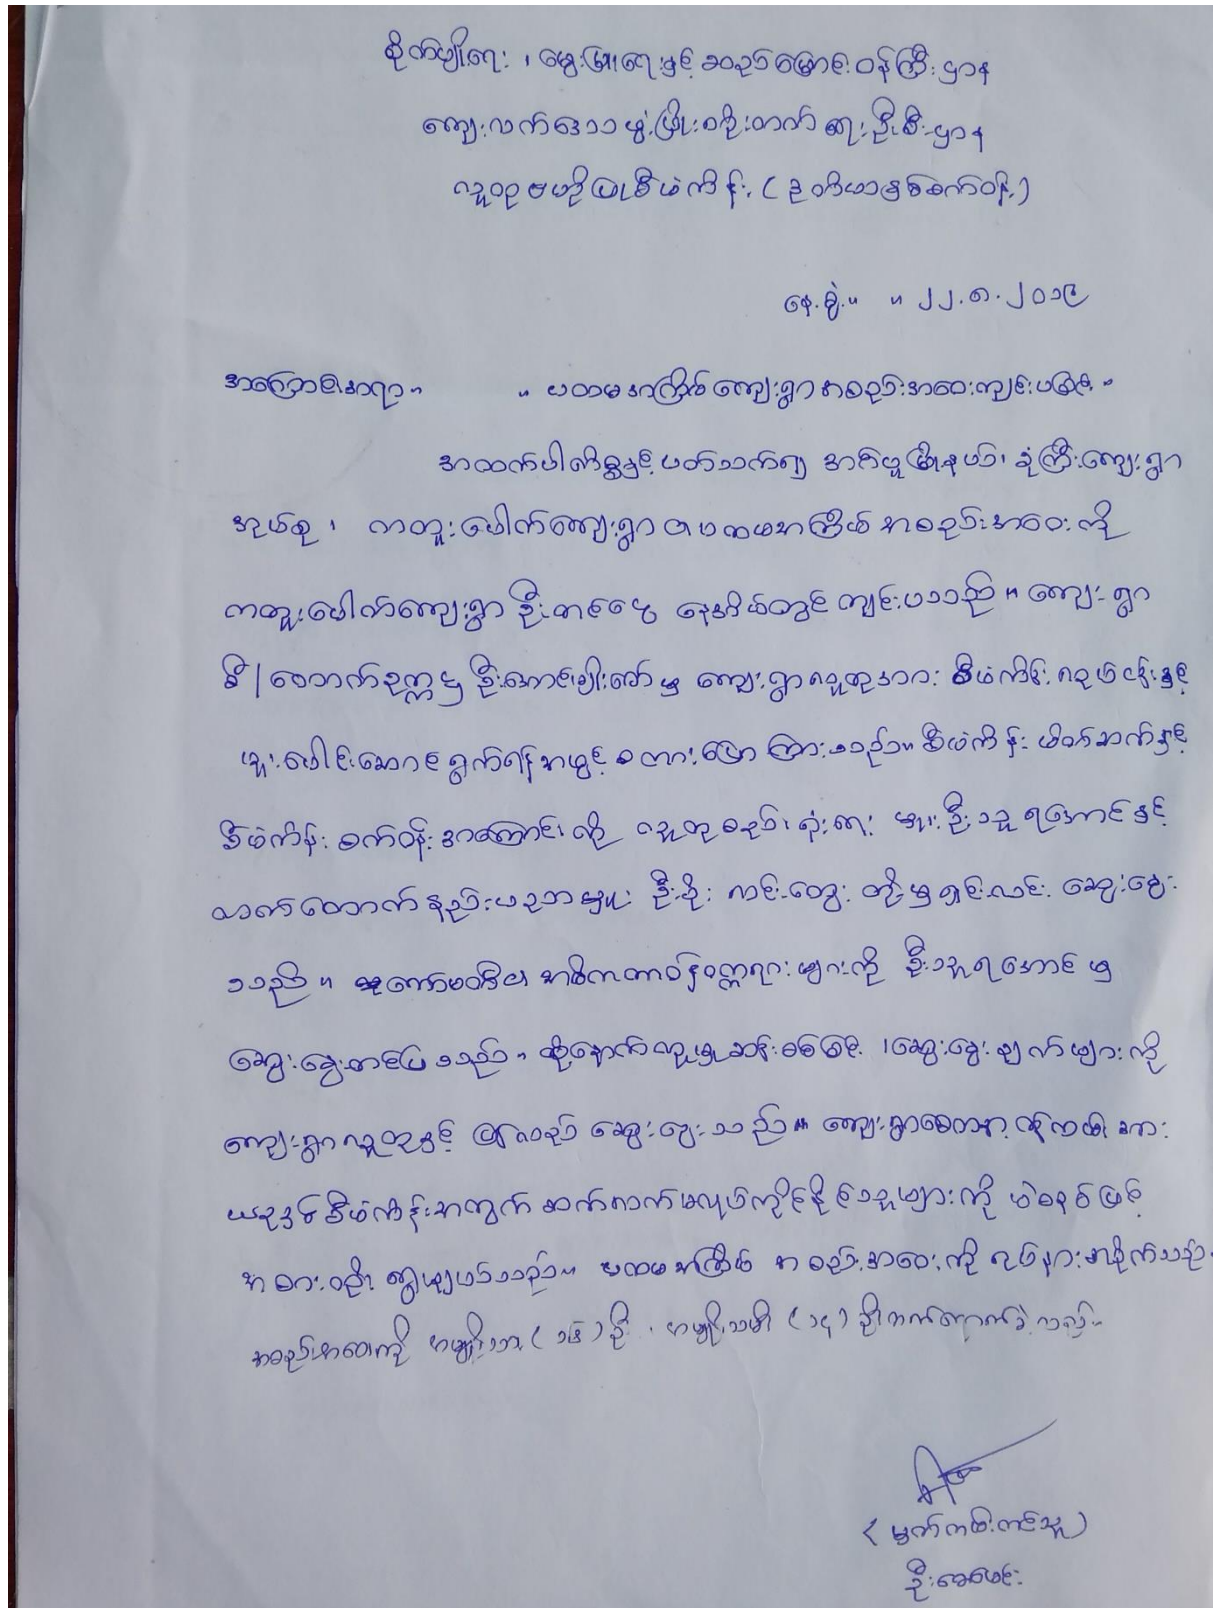 စိုက်ပျိုးရေး ၊ မွေးမြူရေးနှင့် ဆည်မြောင်းဝန်ကြီးဌာန
ကျေးလက်ဒေသဖွံ့ဖြိုးတိုးတက်ရေးဦးစီးဌာန
လူထုဗဟိုပြုစီမံကိန်း ( ဒုတိယနှစ်စက်ဝန်း )
နေ့စွဲ။ ။ ၂၂.၈.၂၀၁၉
အကြောင်းအရာ။ ။ ပထမအကြိမ်ကျေးရွာအစည်းအဝေးကျင်းပခြင်း ။
အထက်ပါကိစ္စနှင့် ပတ်သက်၍ အင်္ဂပူမြို့နယ်၊ ခုံကြီးကျေးရွာ
အုပ်စု ၊ ကတူးပေါက်ကျေးရွာ ၏ ပထမအကြိမ် အစည်းအဝေးကို
ကတူးပေါက်ကျေးရွာ ဦးတင်ငွေ နေအိမ်တွင် ကျင်းပသည် ။ ကျေးရွာ
စီ/ထောက်ဥက္ကဋ္ဌ ဦးအောင်မျိုးဇော်မှ ကျေးရွာလူထုအား စီမံကိန်း လုပ်ငန်းနှင့်
ပူးပေါင်းဆောင်ရွက်ရန်အဖွင့် စကားပြောကြားသည်။ စီမံကိန်း မိတ်ဆက်နှင့်
စီမံကိန်း စက်ဝန်းအကြောင်းကို လူထုစည်းရုံးရေးမှူး ဦးသူရအောင်နှင့်
လက်ထောက်နည်းပညာမှူး ဦးစိုး ကင်းထွေး တို့မှရှင်းလင်း ဆွေးနွေး
သည် ။ အဓိကတာဝန်ဝတ္တရားများကို ဦးသူရအောင် မှ
ဆွေးနွေးတင်ပြသည် ။ ထို့နောက်လူမှုဆန်းစစ်ခြင်း ၊ ဆွေးနွေးချက်များကို
ကျေးရွာလူထုနှင့် ပြန်လည် ဆွေးနွေးသည် ။ ကျေးရွာစေတနာ့ဝန်ထမ်းအား
ယခုနှစ်စီမံကိန်းအတွက် ဆက်လက်မလုပ်ကိုင်နိုင်သူများကို မဲစနစ်ဖြင့်
အစားထိုး ရွေးချယ်သည်။ ပထမအကြိမ် အစည်းအဝေးကို ရုပ်နားလိုက်သည်။
အစည်းအဝေးကို အမျိုးသား ( ၁၆ ) ဦး ၊ အမျိုးသမီး ( ၁၄ ) ဦးတက်ရောက်ခဲ့သည်။
( မွှက်ကမ်းကင်သူ )